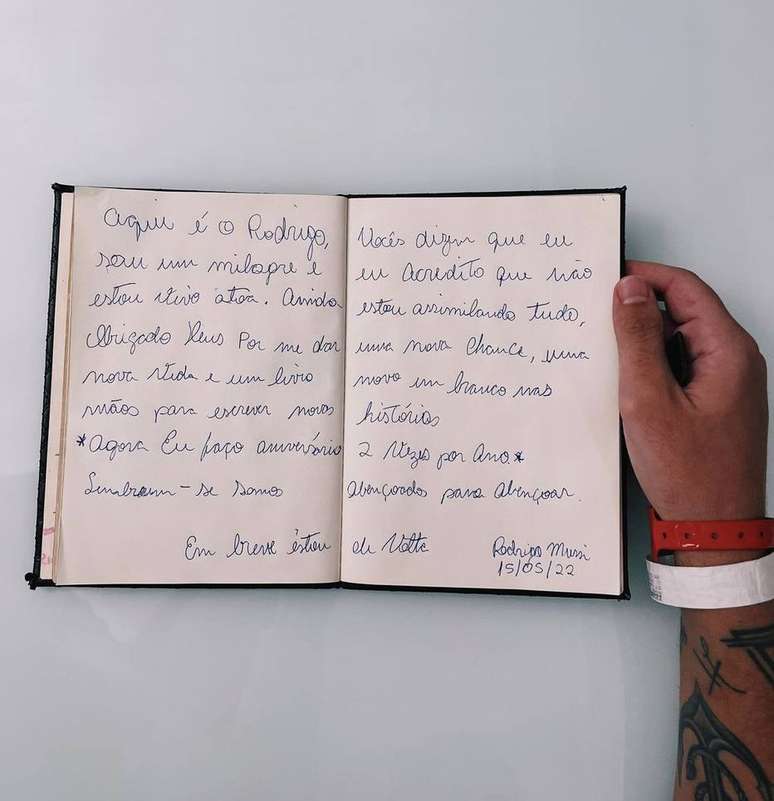 Aqui é o Rodrigo, Vocês dizem que eu
sou um milagre e eu acredito que não
estou vivo atoa. Ainda estou assimilando tudo,
Obrigado Deus Por me dar uma nova chance, uma
nova vida e um livro novo em branco nas
mãos para escrever novas histórias
*Agora Eu faço aniversário 2 Vezes por Ano*
Lembram-se somos Abençoados para Abençoar.
Em breve estou de Volta Rodrigo Mussi
15/05/22